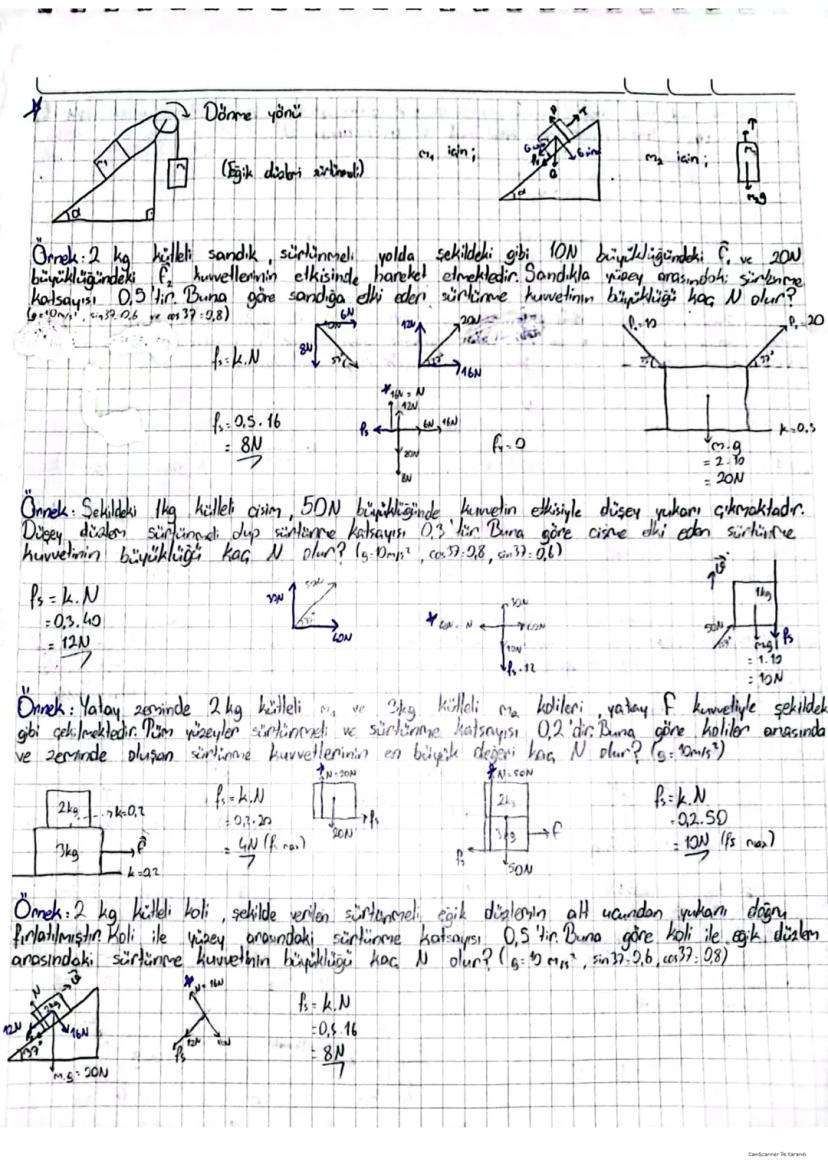 Dönme yönü
(Eğik düzlem sürtünmeli)
m₁ için;
m₂ için;
m₂g
Örnek: 2 kg kütleli sandık, sürtünmeli yolda şekildeki gibi 10N büyüklüğündeki F₁ ve 20N
büyüklüğündeki F₂ kuvvetlerinin etkisinde hareket etmektedir. Sandıkla yüzey arasındaki sürtünme
katsayısı 0,5'tir. Buna göre sandığa etki eden sürtünme kuvvetinin büyüklüğü kaç N olur?
(g=10m/s², sin37=0,6 ve cos37=0,8)
6N
8N
12N
20N
16N
fs=k.N
fs=0,5.16
= 8N
16N = N
12N
fs
6N 16N
20N
8N
20
k=0,5
m.g
= 2.10
= 20N
Örnek: Şekildeki 1kg kütleli cisim, 50N büyüklüğünde kuvvetin etkisiyle düşey yukarı çıkmaktadır.
Düşey düzlem sürtünmeli olup sürtünme katsayısı 0,3'tür. Buna göre cisme etki eden sürtünme
kuvvetinin büyüklüğü kaç N olur? (g=10m/s², cos37=0,8, sin37=0,6)
fs = k.N
=0,3.40
= 12N
30N
50N
40N
30N
10N
fs=12
1kg
50N
fs
mg
= 1.10
= 10N
Örnek: Yatay zeminde 2 kg kütleli m₁ ve 3kg kütleli m₂ kolileri, yatay F kuvvetiyle şekildeki
gibi çekilmektedir. Tüm yüzeyler sürtünmeli ve sürtünme katsayısı 0,2'dir. Buna göre koliler arasında
ve zeminde oluşan sürtünme kuvvetlerinin en büyük değeri kaç N olur? (g=10m/s²)
2kg
k=0,2
3kg
F
k=0,2
fs=k.N
=0,2.20
= 4N (fs max)
N=20N
20N
fs
N=50N
2kg
3kg
F
fs
50N
fs=k.N
=0,2.50
= 10N (fs max)
Örnek: 2 kg kütleli koli, şekilde verilen sürtünmeli eğik düzlemin alt ucundan yukarı doğru
fırlatılmıştır. Koli ile yüzey arasındaki sürtünme katsayısı 0,5'tir. Buna göre koli ile eğik düzlem
arasındaki sürtünme kuvvetinin büyüklüğü kaç N olur? (g=10 m/s², sin37=0,6, cos37=0,8)
N
2kg
12N
16N
37°
m.g = 20N
N=16N
fs
12N
fs= k.N
=0,5.16
= 8N
CamScanner ile tarandı